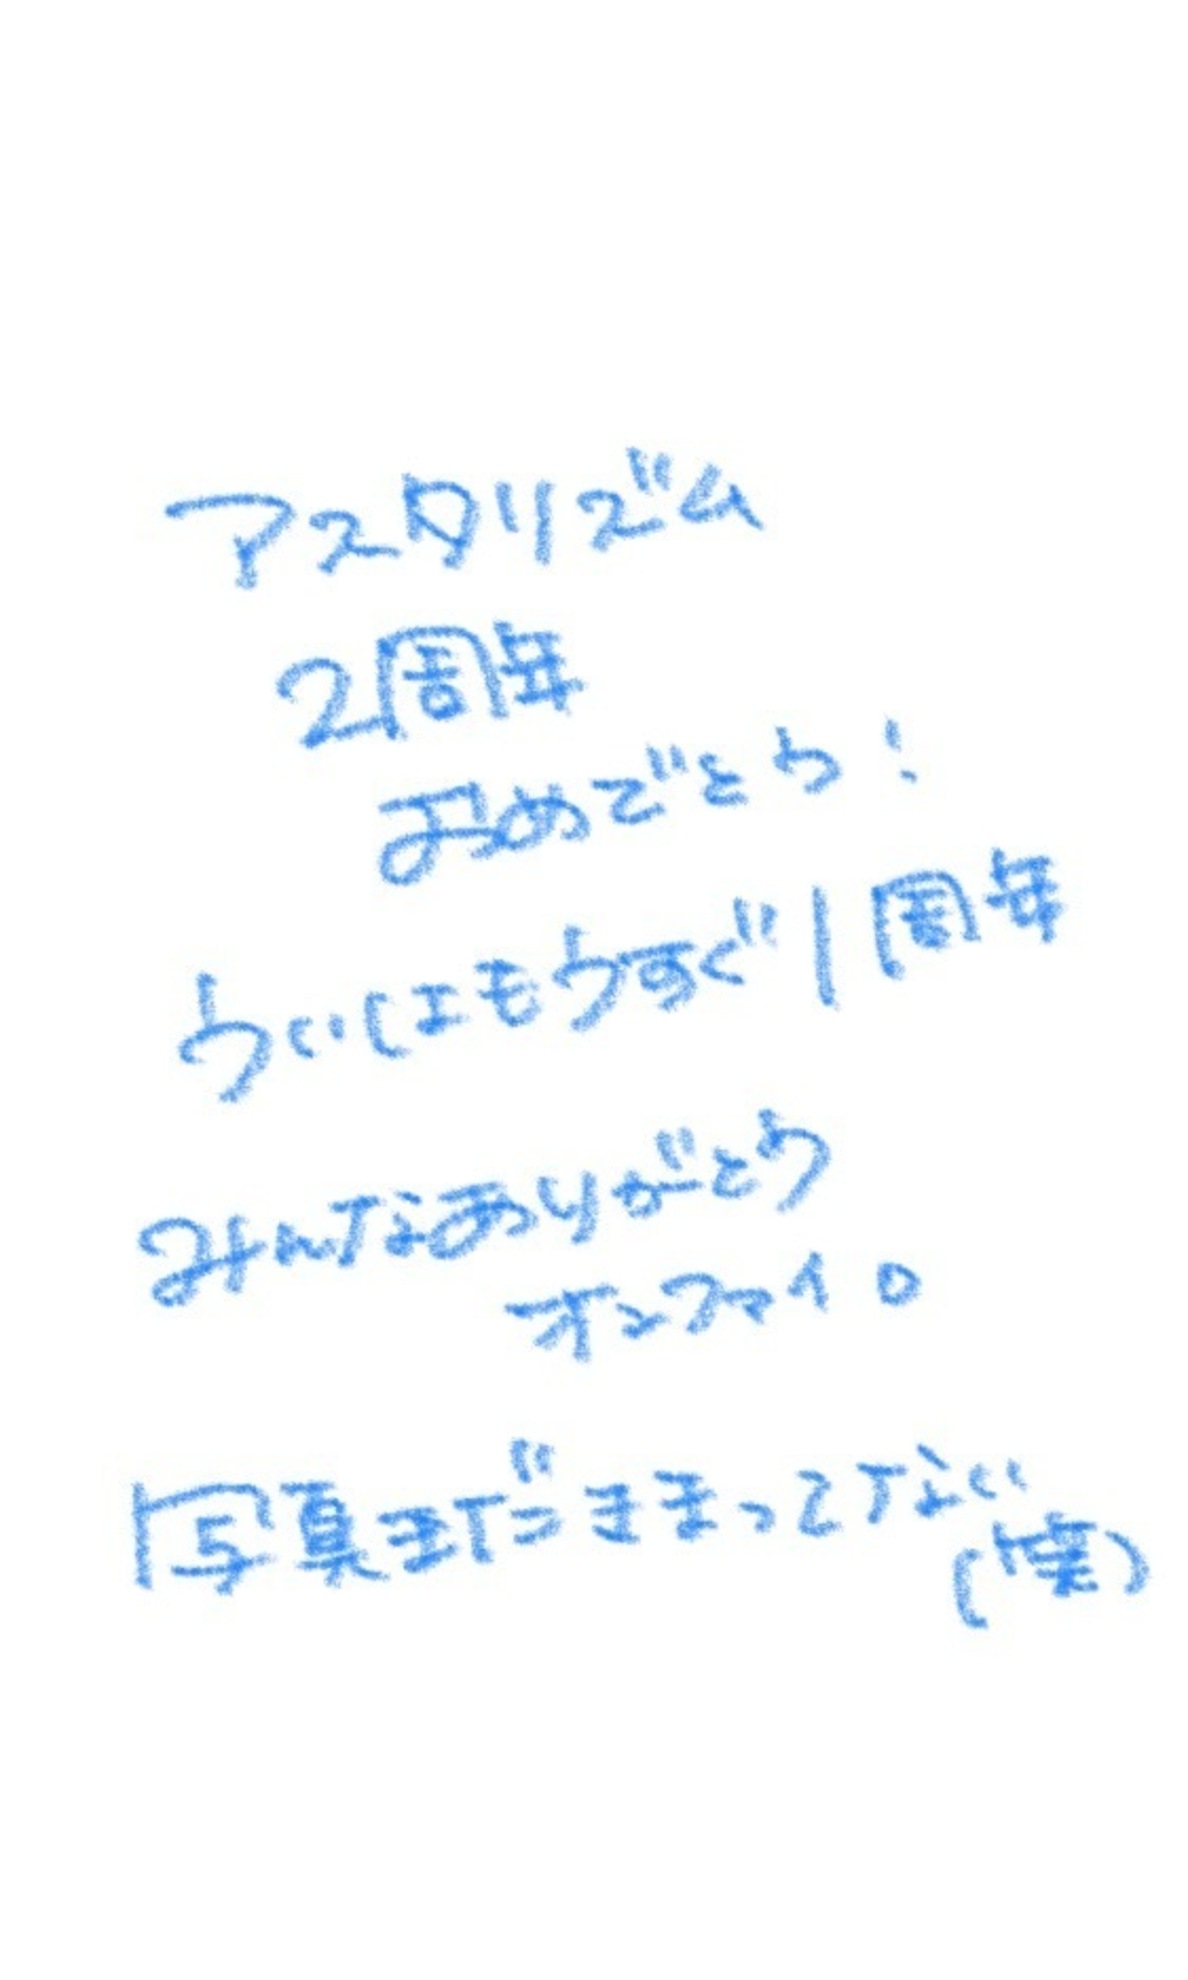 アスタリズム
2周年
おめでとう!
ういはもうすぐ1周年
みんなありがとう
オンファイ。
写真まだきまってない
(笑)